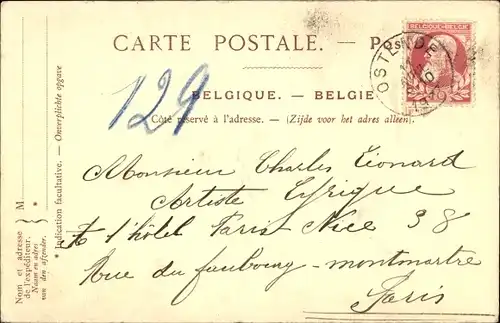 CARTE POSTALE. — Pos
BELGIQUE-BELGIË
OSTENDE
10
129
BELGIQUE. — BELGIE
Côté réservé à l'adresse. — (Zijde voor het adres alleen).
Monsieur Charles Léonard
Artiste Lyrique
A l'hôtel Paris Nice 38
Rue du faubourg-montmartre
Paris
* Indication facultative. — Onverplichte opgave
M.
*
Nom et adresse
de l'expéditeur.
Naam en adres
van den afzender.